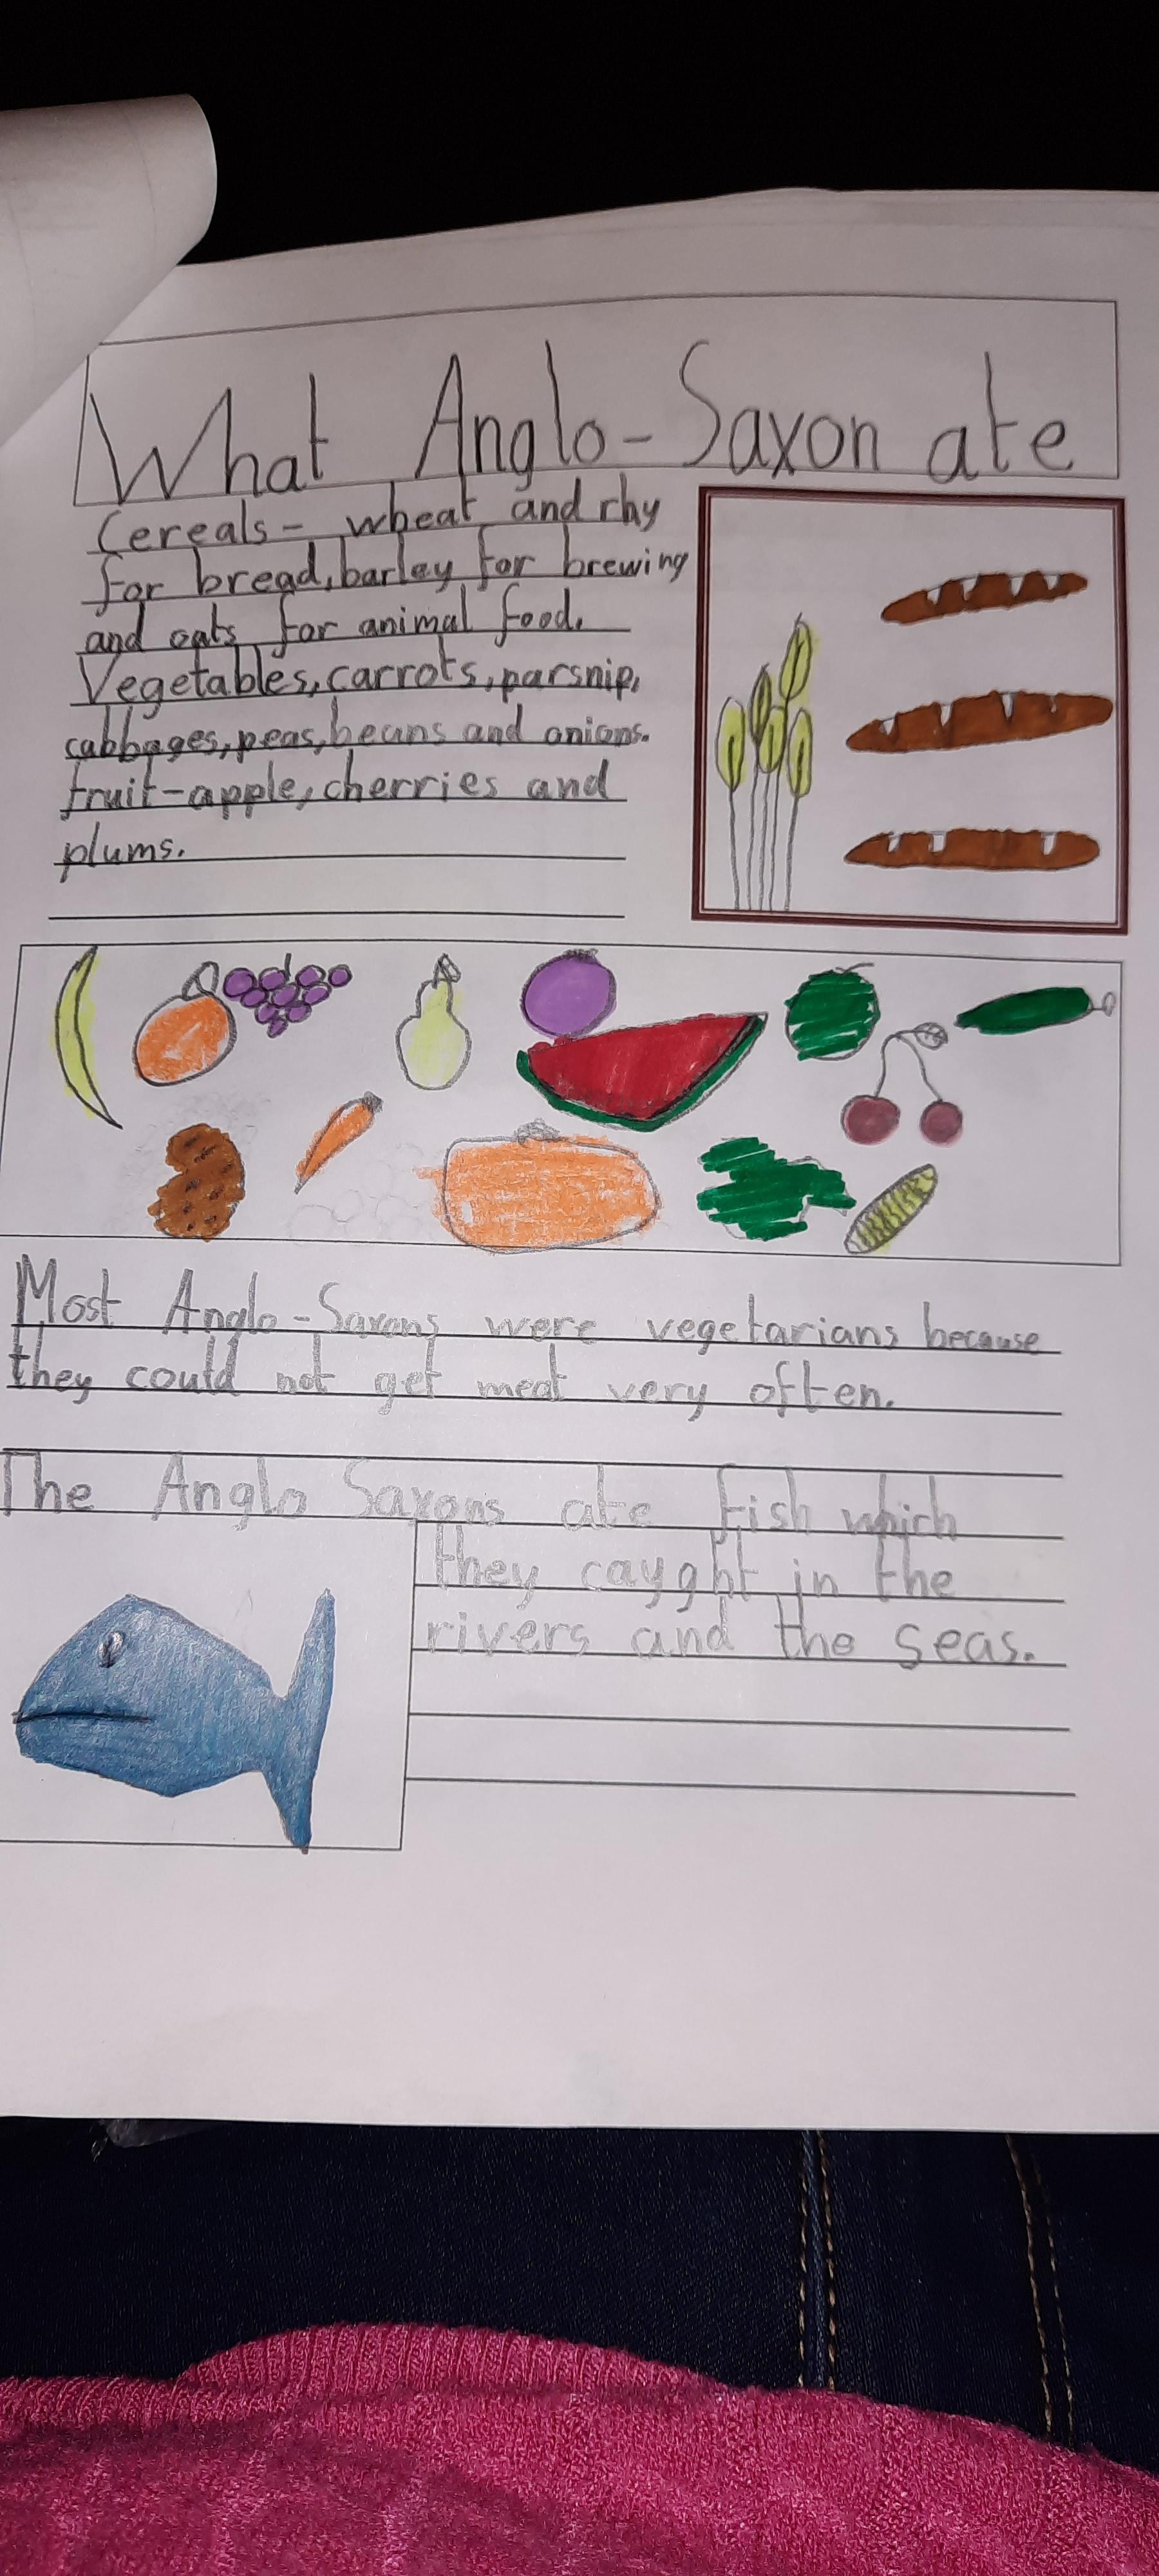 What Anglo-Saxon ate
Cereals- wheat and rhy
for bread, barley for brewing
and oats for animal food.
Vegetables, carrots, parsnip,
cabbages, peas, beans and onions.
fruit-apple, cherries and
plums.
Most Anglo-Saxons were vegetarians because
they could not get meat very often.
The Anglo Saxons ate fish which
they cayght in the
rivers and the seas.